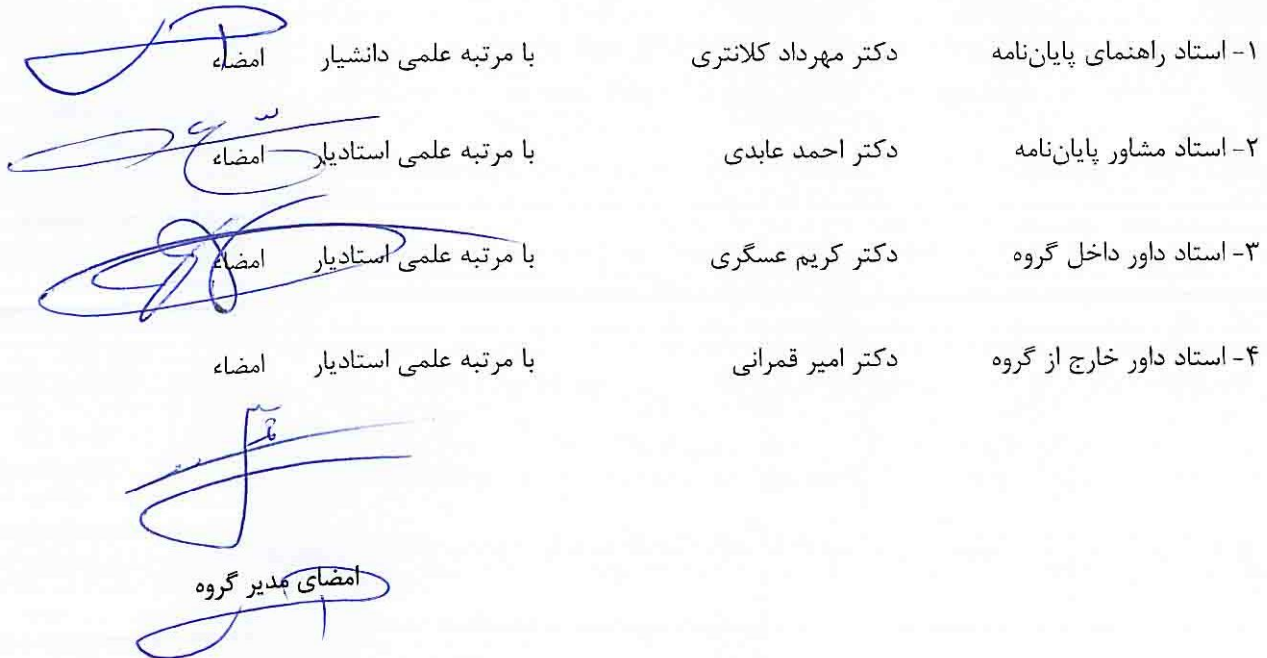 ۱- استاد راهنمای پایان‌نامه دکتر مهرداد کلانتری با مرتبه علمی دانشیار امضاء
۲- استاد مشاور پایان‌نامه دکتر احمد عابدی با مرتبه علمی استادیار امضاء
۳- استاد داور داخل گروه دکتر کریم عسگری با مرتبه علمی استادیار امضاء
۴- استاد داور خارج از گروه دکتر امیر قمرانی با مرتبه علمی استادیار امضاء
امضای مدیر گروه